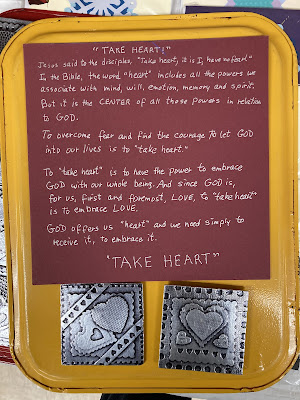 "TAKE HEART!"
Jesus said to the disciples, "Take heart, it is I, have no fear!"
In the Bible, the word "heart" includes all the powers we
associate with mind, will, emotion, memory and spirit.
But it is the CENTER of all those Powers in relation
to GOD.
To overcome fear and find the courage to let GOD
into our lives is to "take heart."
To "take heart" is to have the power to embrace
GOD with our whole being. And since GOD is,
for us, first and foremost, LOVE, to "take heart"
is to embrace LOVE.
GOD offers us "heart" and we need simply to
receive it, to embrace it.
"TAKE HEART"